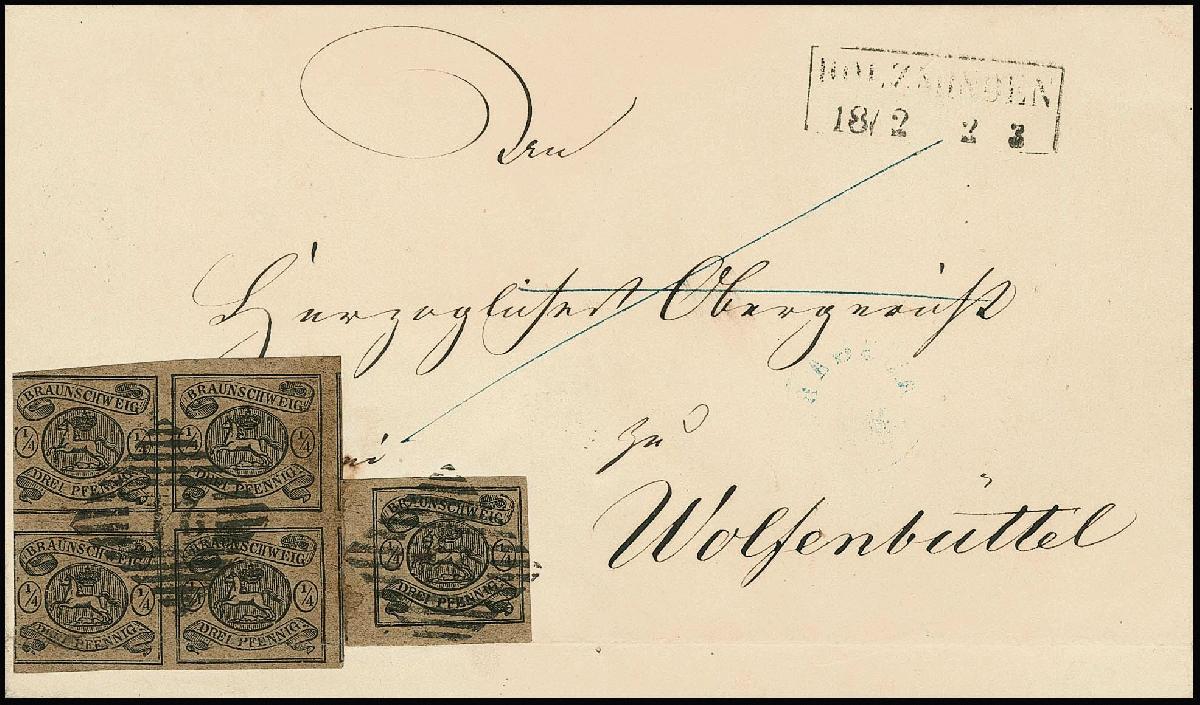 HOLZMINDEN
18/2 2 3
Den
Herzoglichen Obergericht
zu
Wolfenbüttel
BRAUNSCHWEIG
1/4 1/4
DREI PFENNIG
BRAUNSCHWEIG
1/4 1/4
DREI PFENNIG
BRAUNSCHWEIG
1/4 1/4
DREI PFENNIG
BRAUNSCHWEIG
1/4 1/4
DREI PFENNIG
BRAUNSCHWEIG
1/4 1/4
DREI PFENNIG